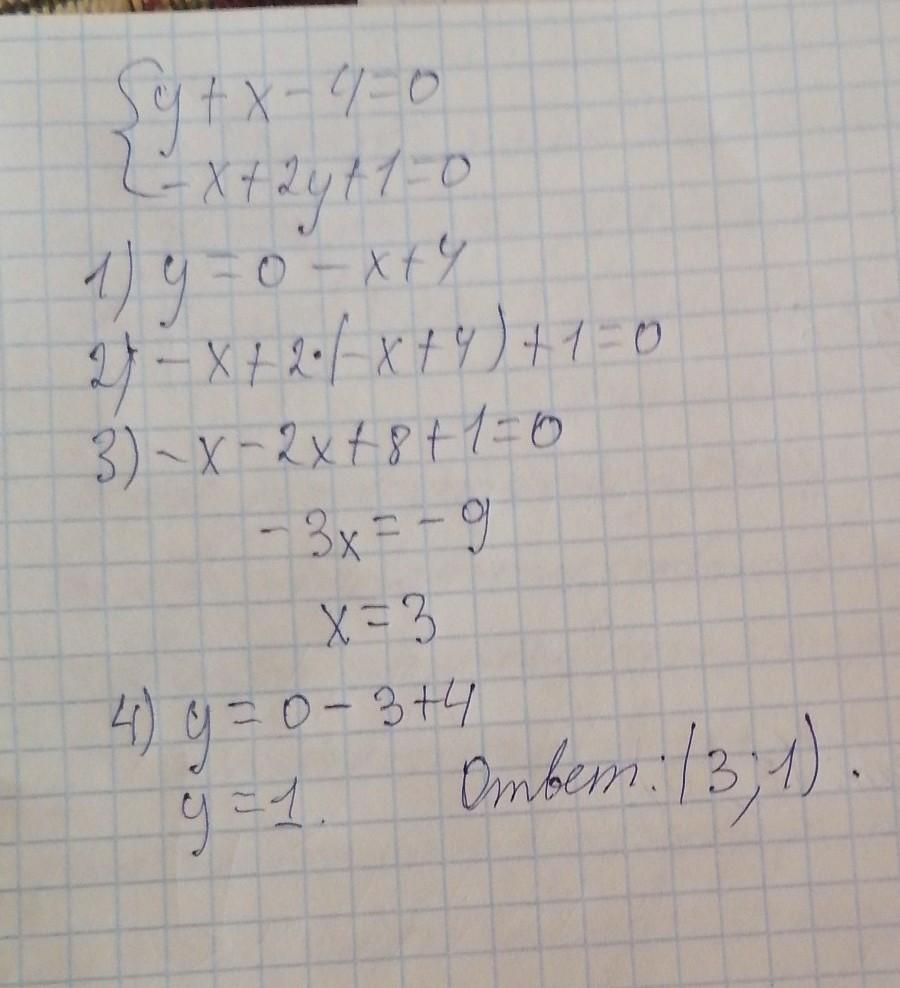 {y+x-4=0
-x+2y+1=0
1) y=0-x+4
2) -x+2·(-x+4)+1=0
3) -x-2x+8+1=0
-3x=-9
x=3
4) y=0-3+4
y=1. Ответ: (3;1).